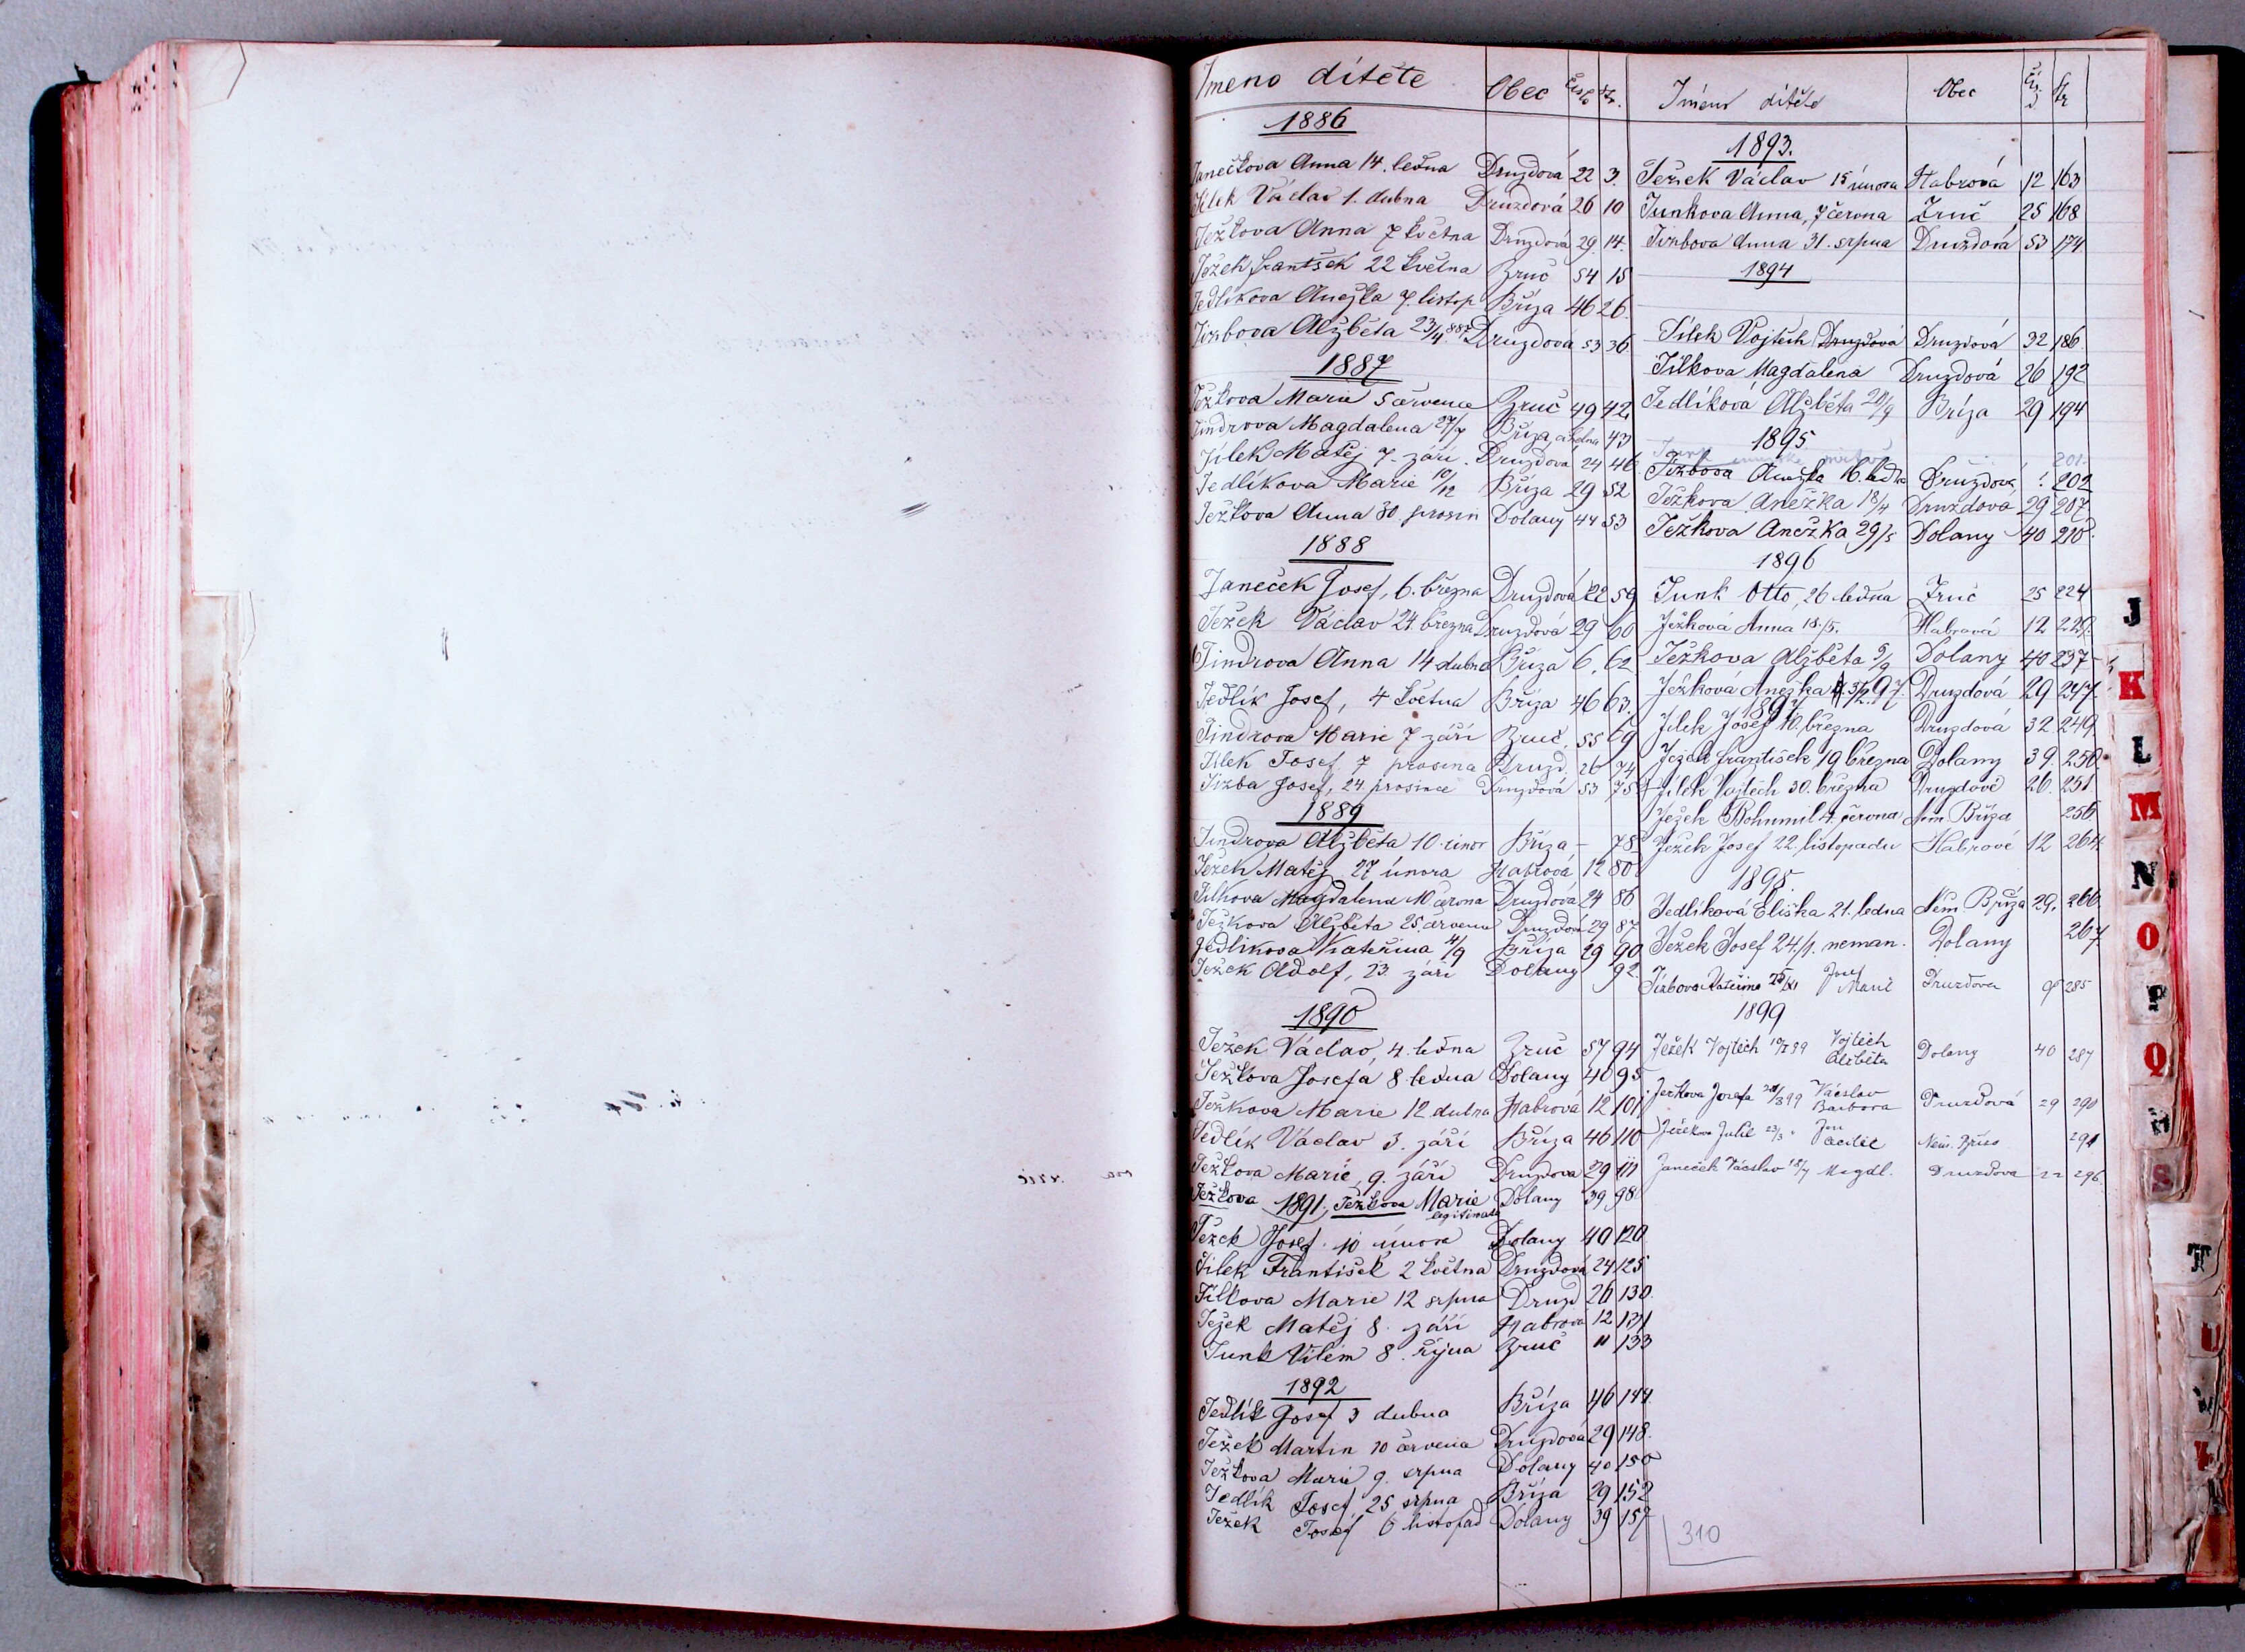 Jmeno dítěte Obec Číslo Str.
1886
Janečkova Anna 14. ledna Druzdová 22 3.
Jílek Václav 1. dubna Druzdová 26 10
Ježkova Anna 7 května Druzdová 29. 14.
Ježek František 22 května Zruč 54 15
Jedlíkova Anežka 7. listop Bříza 46 26.
Jizbova Alžběta 23/4 887 Druzdová 53 36
1887
Ježkova Marie 5 července Zruč 49 42.
Jindrova Magdalena 27/7 Bříza 43
Jílek Matěj 7. září. Druzdová 24 46
Jedlíkova Marie 10/12 Bříza 29 52
Ježkova Anna 30. prosin Dolany 44 53
1888
Janeček Josef, 6. března Druzdová 22 59
Ježek Václav 24. března Druzdová 29 60
Jindrova Anna 14 dubna Bříza 6, 62
Jedlík Josef, 4 května Bříza 46 63.
Jindrova Marie 7 září Zruč. 55 69
Jílek Josef 7 prosina Druzd. 26 74
Jizba Josef, 24. prosince Druzdová 53 75
1889
Jindrova Alžběta 10. únor Bříza – 78
Ježek Matěj 27 února Habrová 12 80
Jílkova Magdalena 10 června Druzdová 24 86
Ježkova Alžběta 25. července Druzdová 29 87
Jedlikova Kateřina 4/9 Bříza 29 90
Ježek Adolf, 23 září Dolany 92.
1890
Ježek Václav, 4. ledna Zruč 57 94
Ježkova Josefa 8 ledna Dolany 40 95
Ježkova Marie 12. dubna Habrová 12 101
Jedlík Václav 3. září Bříza 46 110
Ježkova Marie, 9. září Druzdova 29 111
Ježkova 1891, Ježkova Marie Dolany 39 98
legitimata
Ježek Josef 10 února Dolany 40 120
Jílek František 2 května Druzdová 24 125
Jílkova Marie 12 srpna Druzd 26 130.
Ježek Matěj 8. září Habrova 12 131
Junk Vilém 8. října Zruč " 133
1892
Jedlík Josef 3 dubna Bříza 46 144.
Ježek Martin 10 července Druzdová 29 148.
Ježkova Marie 9. srpna Dolany 40 150
Jedlík Josef 25 srpna Bříza 29 152
Ježek Josef 6 listopad Dolany 39 157
Jméno dítěte Obec Čís. Str
1893.
Ježek Václav 15 února Habrová 12 163
Junkova Anna, 7 června Zruč 25 168
Jizbova Anna 31. srpna Druzdová 53 174
1894
Jílek Vojtěch Druzdová Druzdová 32 186
Jílkova Magdalena Druzdová 26 192
Jedlíková Alžběta 20/9 Bříza 29 194
1895
Junk 201.
Jizbova Anežka 16. ledna Druzdová : 202
Ježkova Anežka 18/4 Druzdova 29 207
Ježkova Anežka 29/5 Dolany 40 210.
1896
Junk Otto, 26 ledna Zruč 25 224
Ježková Anna 18./5. Habrová 12 229.
Ježkova Alžběta 9/9 Dolany 40 237
Ježková Anežka 5/2. 97. Druzdová 29 247.
1897
Jílek Josef 10. března Druzdová 32 249.
Ježek František 19 března Dolany 39. 250.
Jílek Vojtěch 30. března Druzdově 26. 251
Ježek Bohumil 4. června Něm. Bříza 256
Ježek Josef 22. listopadu Habrové 12 264.
1898.
Jedlíková Eliška 21. ledna Něm. Bříza 29. 266
Ježek Josef 24./1. neman. Dolany 267
Jizbova Kateřina 25/XI Josef Marie Druzdova 285
1899
Ježek Vojtěch Vojtěch Alžběta Dolany 40 287
Ježkova Josefa 20/3 99 Václav Barbora Druzdová 29 290
Ježkova Julie 23/3 Něm. Bříza 291
Janeček Václav 18/7 Magdl. Druzdova 22 296.
310
J
K
L
M
N
O
P
Q
R
S
T
U
W